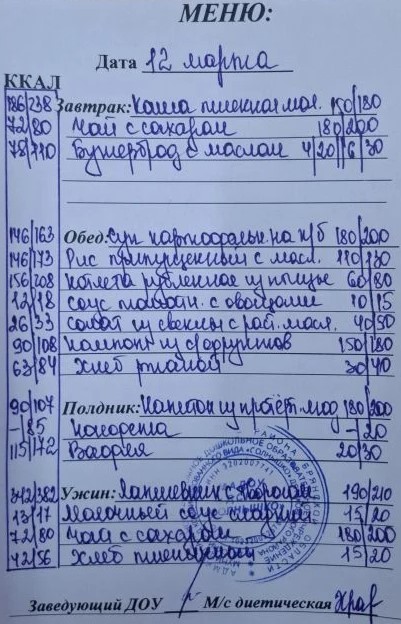 МЕНЮ:
Дата 12 марта
ККАЛ
186/238 Завтрак: Каша пшенная мол. 150/180
72/80 Чай с сахаром 180/200
78/110 Бутерброд с маслом 4/20//6/30
146/163 Обед: Суп картофельн. на к/б 180/200
146/173 Рис припущенный с масл. 110/130
156/208 Котлета рубленное из птицы 60/80
12/18 Соус томатн. с овощами 10/15
26/33 салат из свеклы с раст. масл. 40/50
90/108 Компот из с/фруктов 150/180
63/84 Хлеб ржаной 30/40
90/107 Полдник: Напиток из протёрт. 180/200
-/85 Конфета -/20
115/172 Вафля 20/30
342/382 Ужин: Лапшевник с творогом 190/210
13/17 Молочный соус сладкий 15/20
72/80 Чай с сахаром 180/200
42/56 Хлеб пшеничный 15/20
Заведующий ДОУ М/с диетическая